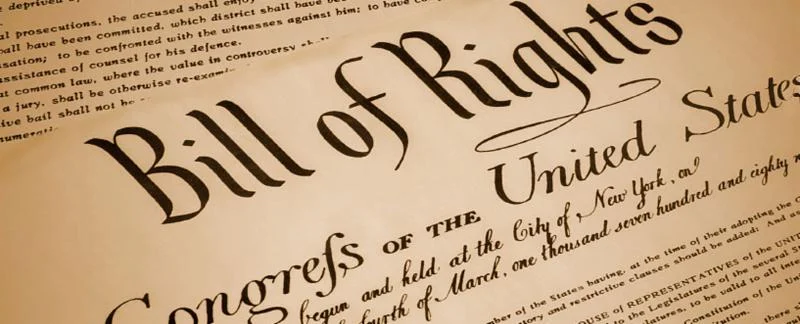 al prosecutions, the accused shall enjoy
all have been committed, which district shall have been
sation; to be confronted with the witnesses against him; to have
ssistance of counsel for his defence.
at common law, where the value in controversy shall
a jury, shall be otherwise re-exam
ive bail shall not be
Bill of Rights
Congreſs OF THE United States
begun and held at the City of New York, on
fourth of March, one thousand seven hundred and eighty
mber of the States having, at the time of their adopting the
tory and restrictive clauses should be added: And as
OUSE of REPRESENTATIVES of the UNIT
the Legislatures of the several S
tures, to be valid to all inte
Constitution of the Un